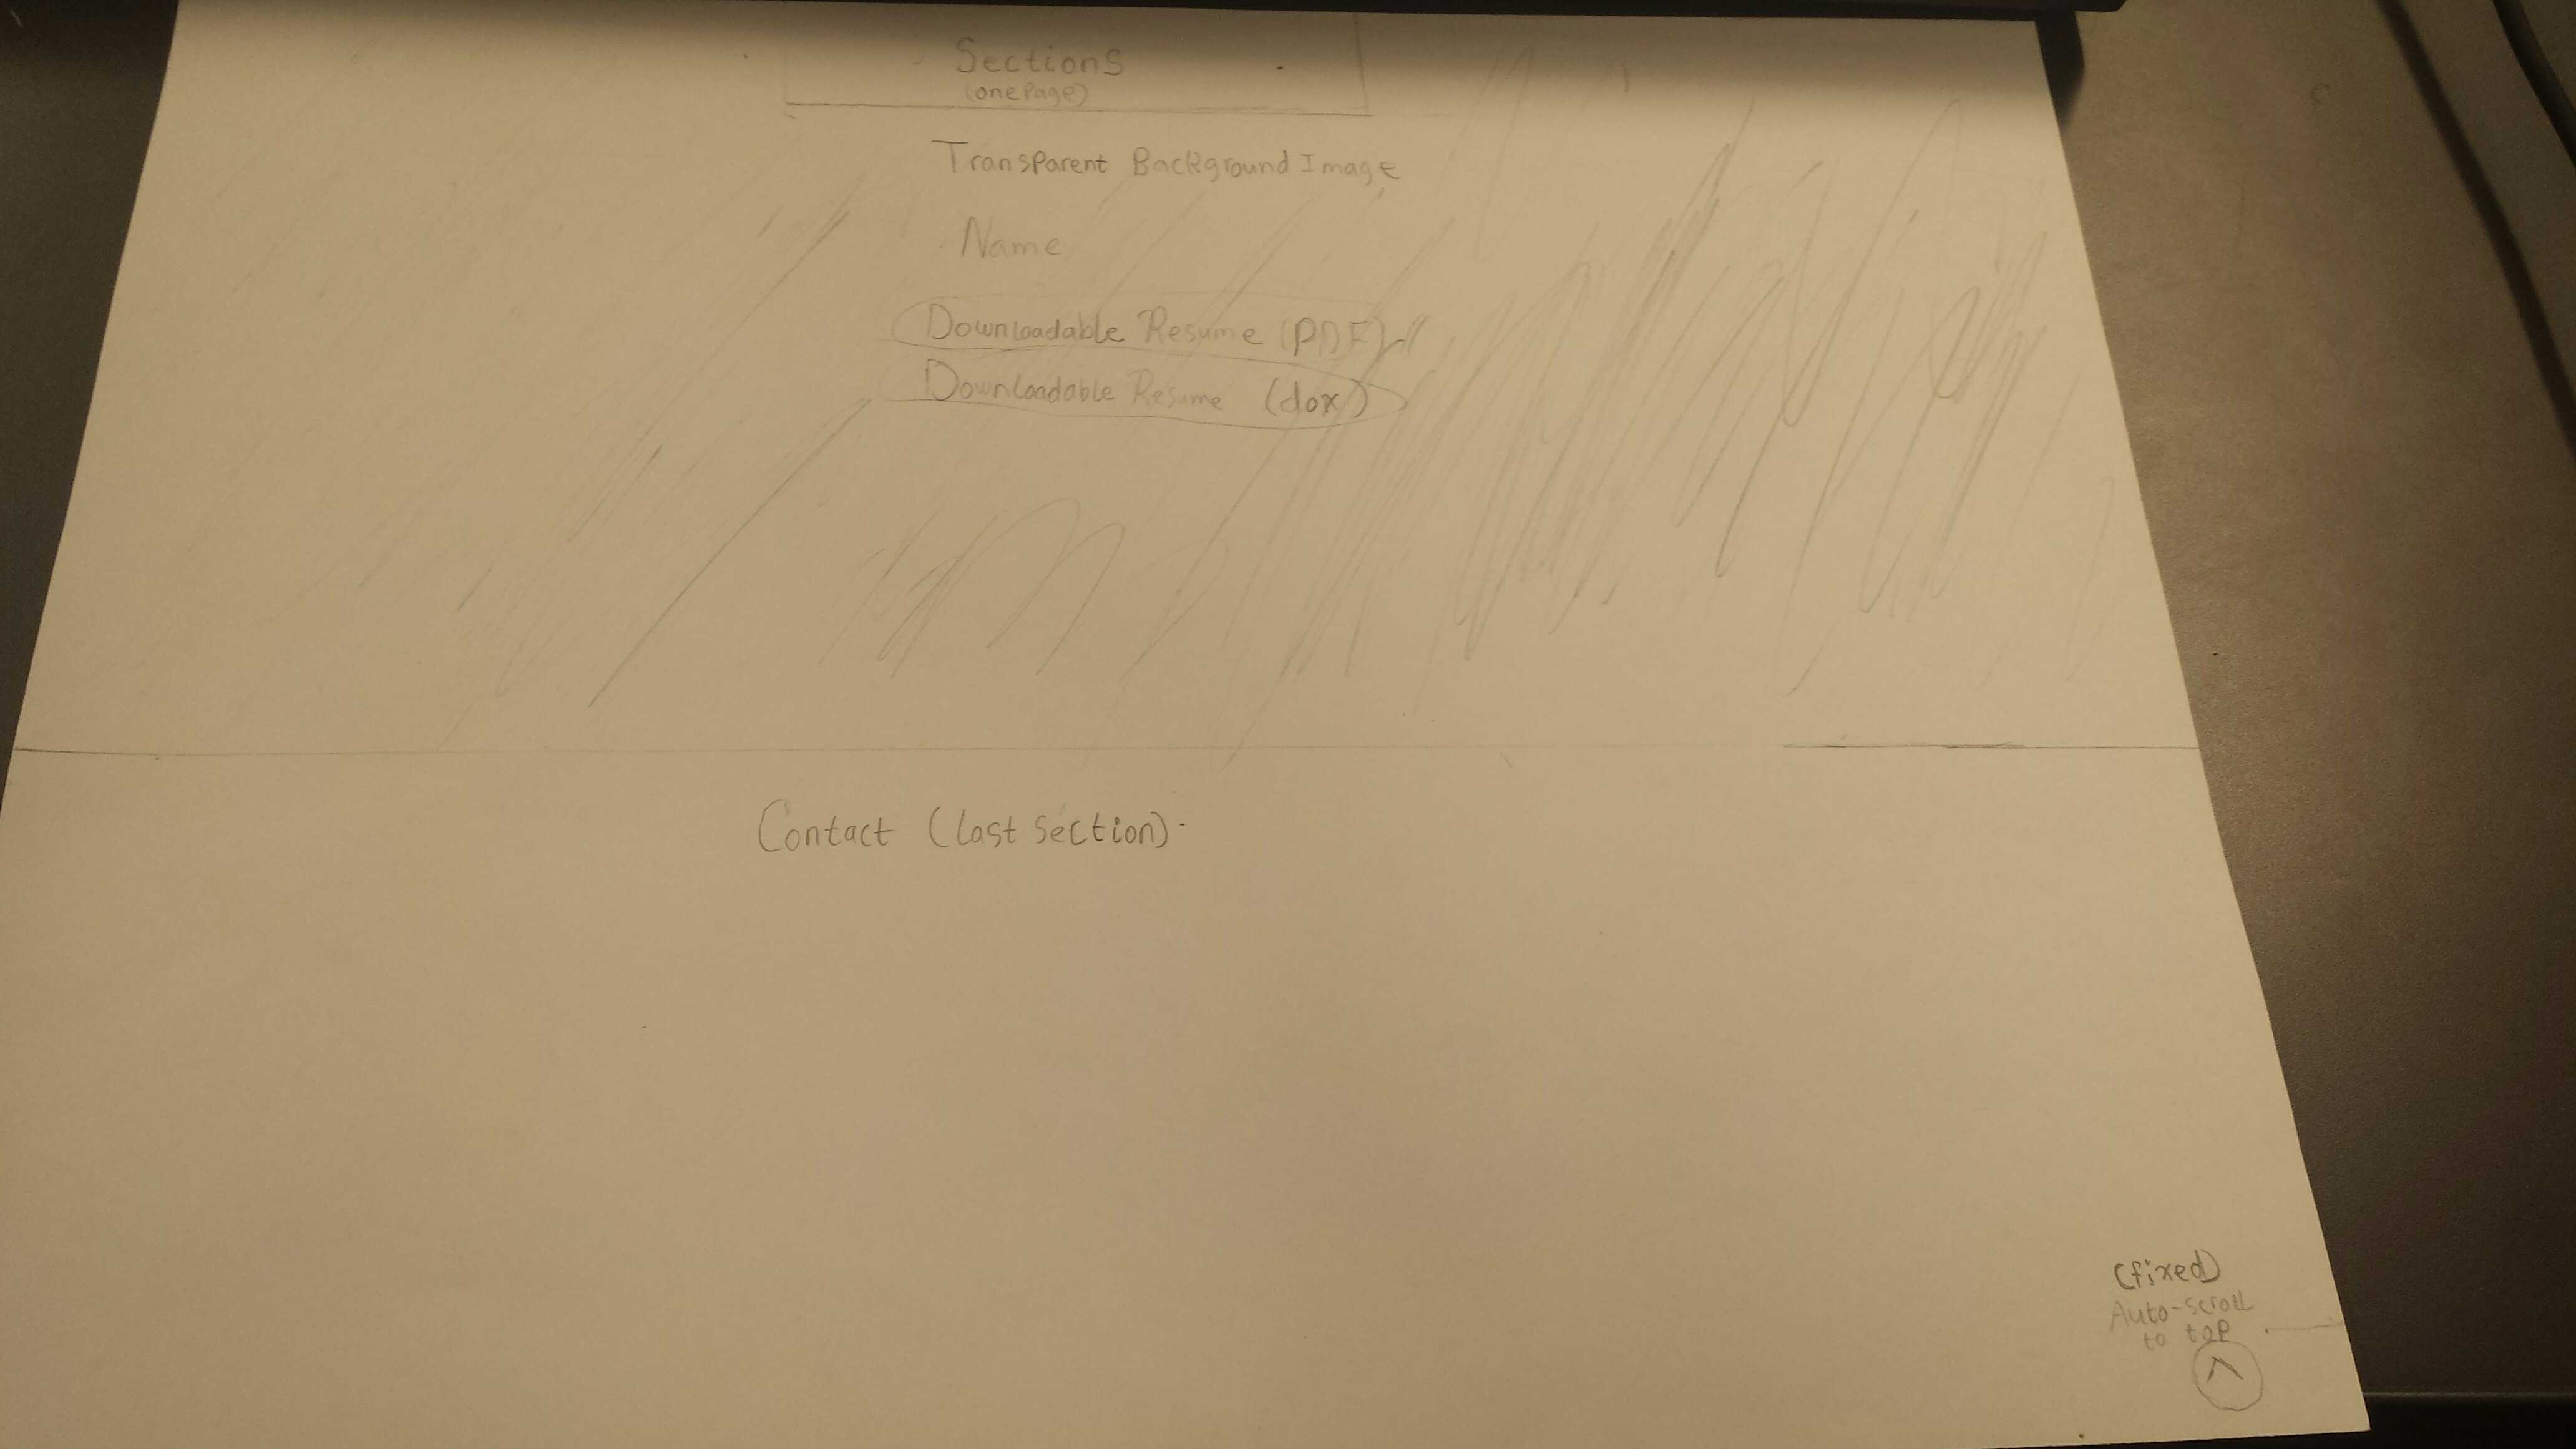 Sections
(one Page)
Transparent Background Image
Name
Downloadable Resume (PDF)
Downloadable Resume (dox)
Contact (last section)
(fixed)
Auto-scroll
to top